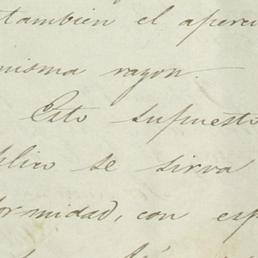 tambien el aperci
misma razon.
Esto supuesto
plico se sirva
formidad, con esp